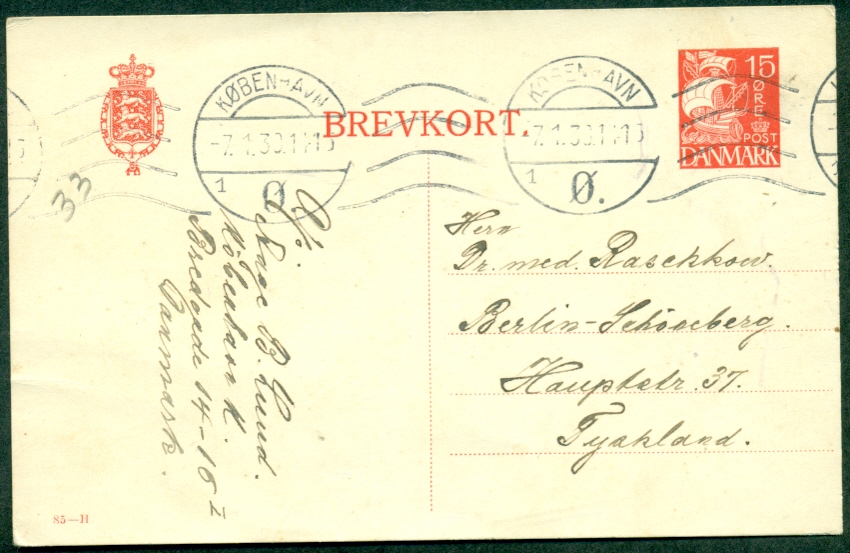 KØBENHAVN
-7.1.30.11-15
1
Ø.
BREVKORT.
KØBENHAVN
-7.1.30.11-15
1
Ø.
15
ØRE
POST
DANMARK
33
Afs.
Aage B. Lund.
København K.
Bredgade 14-16 I
Danmark.
Herrn
Dr. med. Raschkow.
Berlin-Schöneberg.
Hauptstr. 37.
Tyskland.
85—H